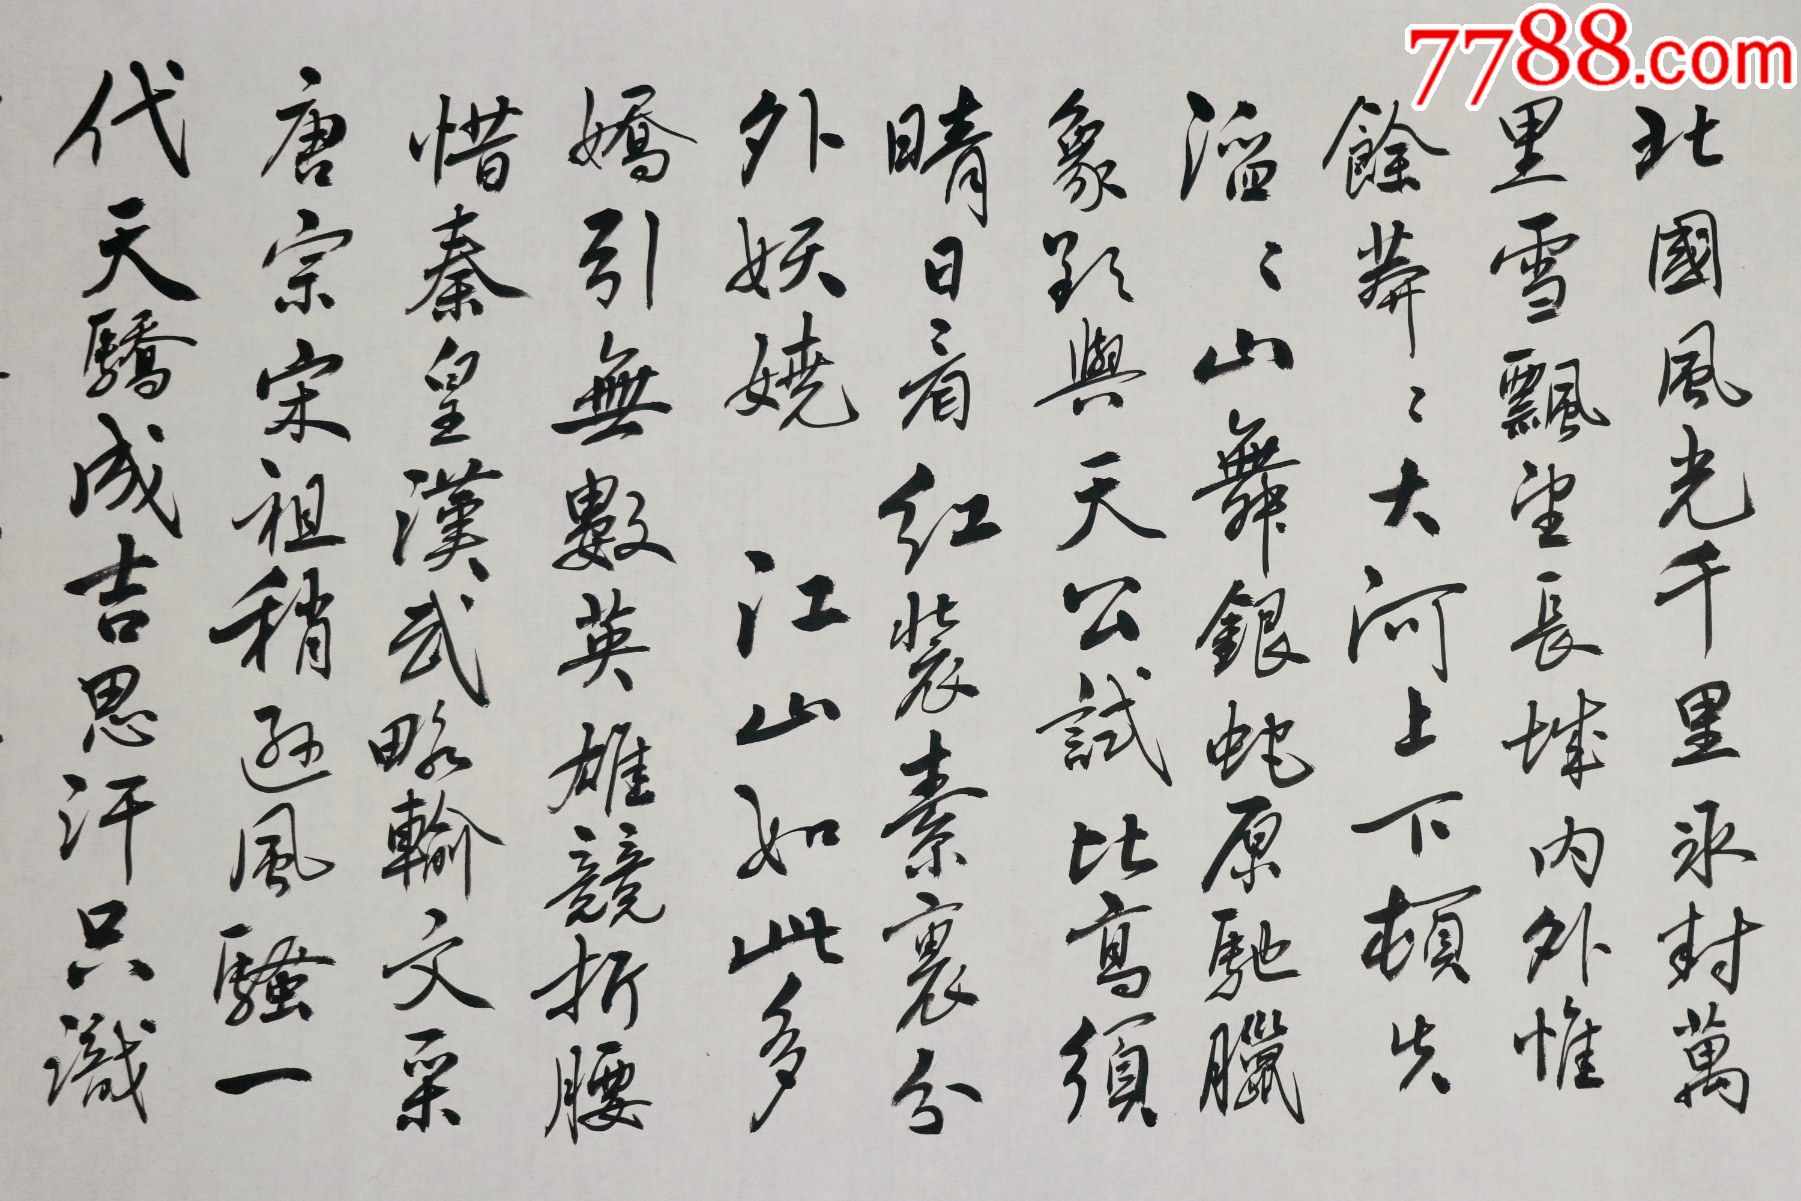 7788.com
北國風光千里冰封萬
里雪飄望長城內外惟
餘莽〻大河上下頓失
滔〻山舞銀蛇原馳臘
象欲與天公試比高須
晴日看紅裝素裹分
外妖嬈 江山如此多
嬌引無數英雄競折腰
惜秦皇漢武略輸文采
唐宗宋祖稍遜風騷一
代天驕成吉思汗只識